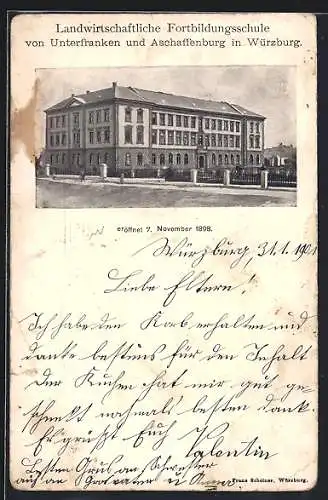 Landwirtschaftliche Fortbildungsschule
von Unterfranken und Aschaffenburg in Würzburg.
eröffnet 2. November 1898.
Würzburg, 31.1.1901
Liebe Eltern!
Ich habe den Korb erhalten und
danke bestens für den Inhalt
der Kuchen hat mir gut ge-
schmeckt nochmals besten Dank.
Es grüsst Euch Valentin
Besten Gruß an Schwester
auch an Großvater u.
Franz Scheiner, Würzburg.